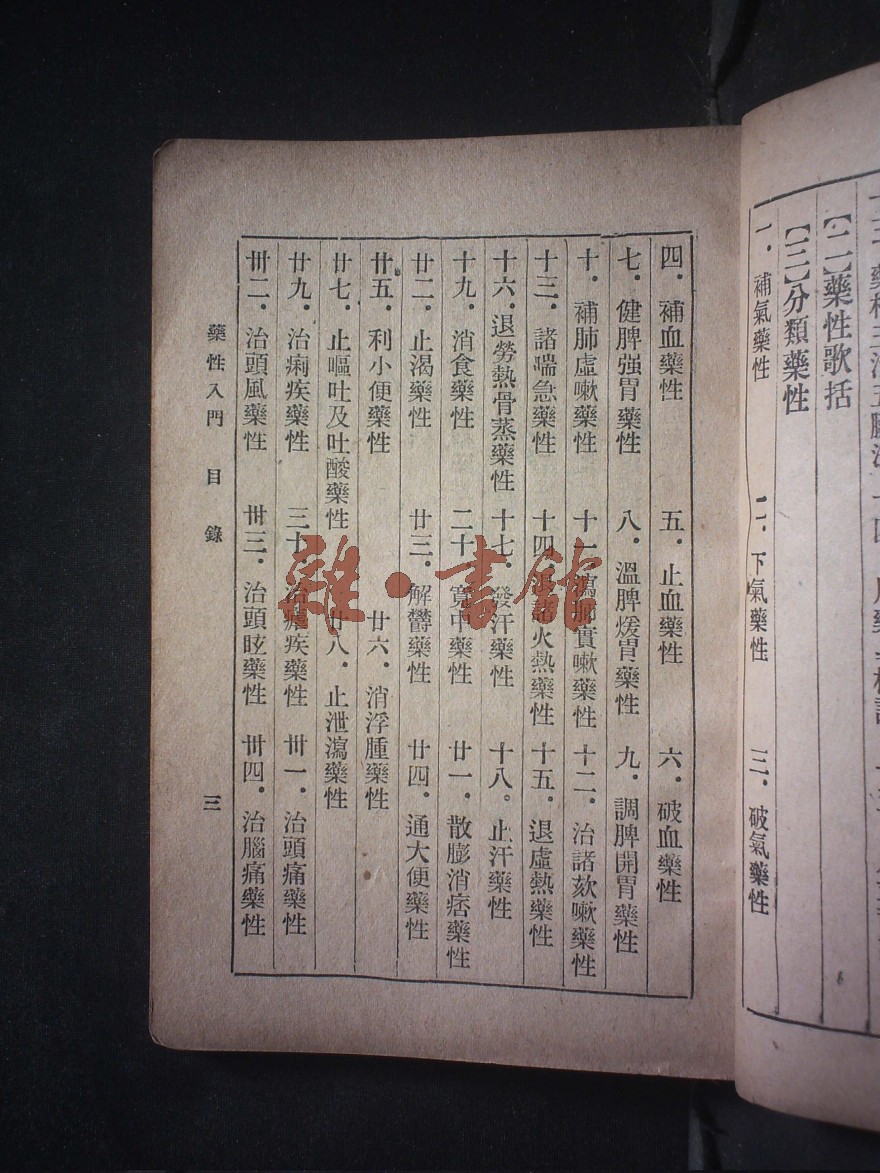 【二】藥性歌括
【三】分類藥性
一．補氣藥性　二．下氣藥性　三．破氣藥性
四．補血藥性　五．止血藥性　六．破血藥性
七．健脾强胃藥性　八．溫脾煖胃藥性　九．調脾開胃藥性
十．補肺虛嗽藥性　十一．瀉肺實嗽藥性　十二．治諸欬嗽藥性
十三．諸喘急藥性　十四．退諸火熱藥性　十五．退虛熱藥性
十六．退勞熱骨蒸藥性　十七．發汗藥性　十八。止汗藥性
十九．消食藥性　二十．寬中藥性　廿一．散膨消痞藥性
廿二．止渴藥性　廿三．解鬱藥性　廿四．通大便藥性
廿五．利小便藥性　廿六．消浮腫藥性
廿七．止嘔吐及吐酸藥性　廿八．止泄瀉藥性
廿九．治痢疾藥性　三十．治瘧疾藥性　卅一．治頭痛藥性
卅二．治頭風藥性　卅三．治頭眩藥性　卅四．治腦痛藥性
藥性入門　目錄　三
雜·書館